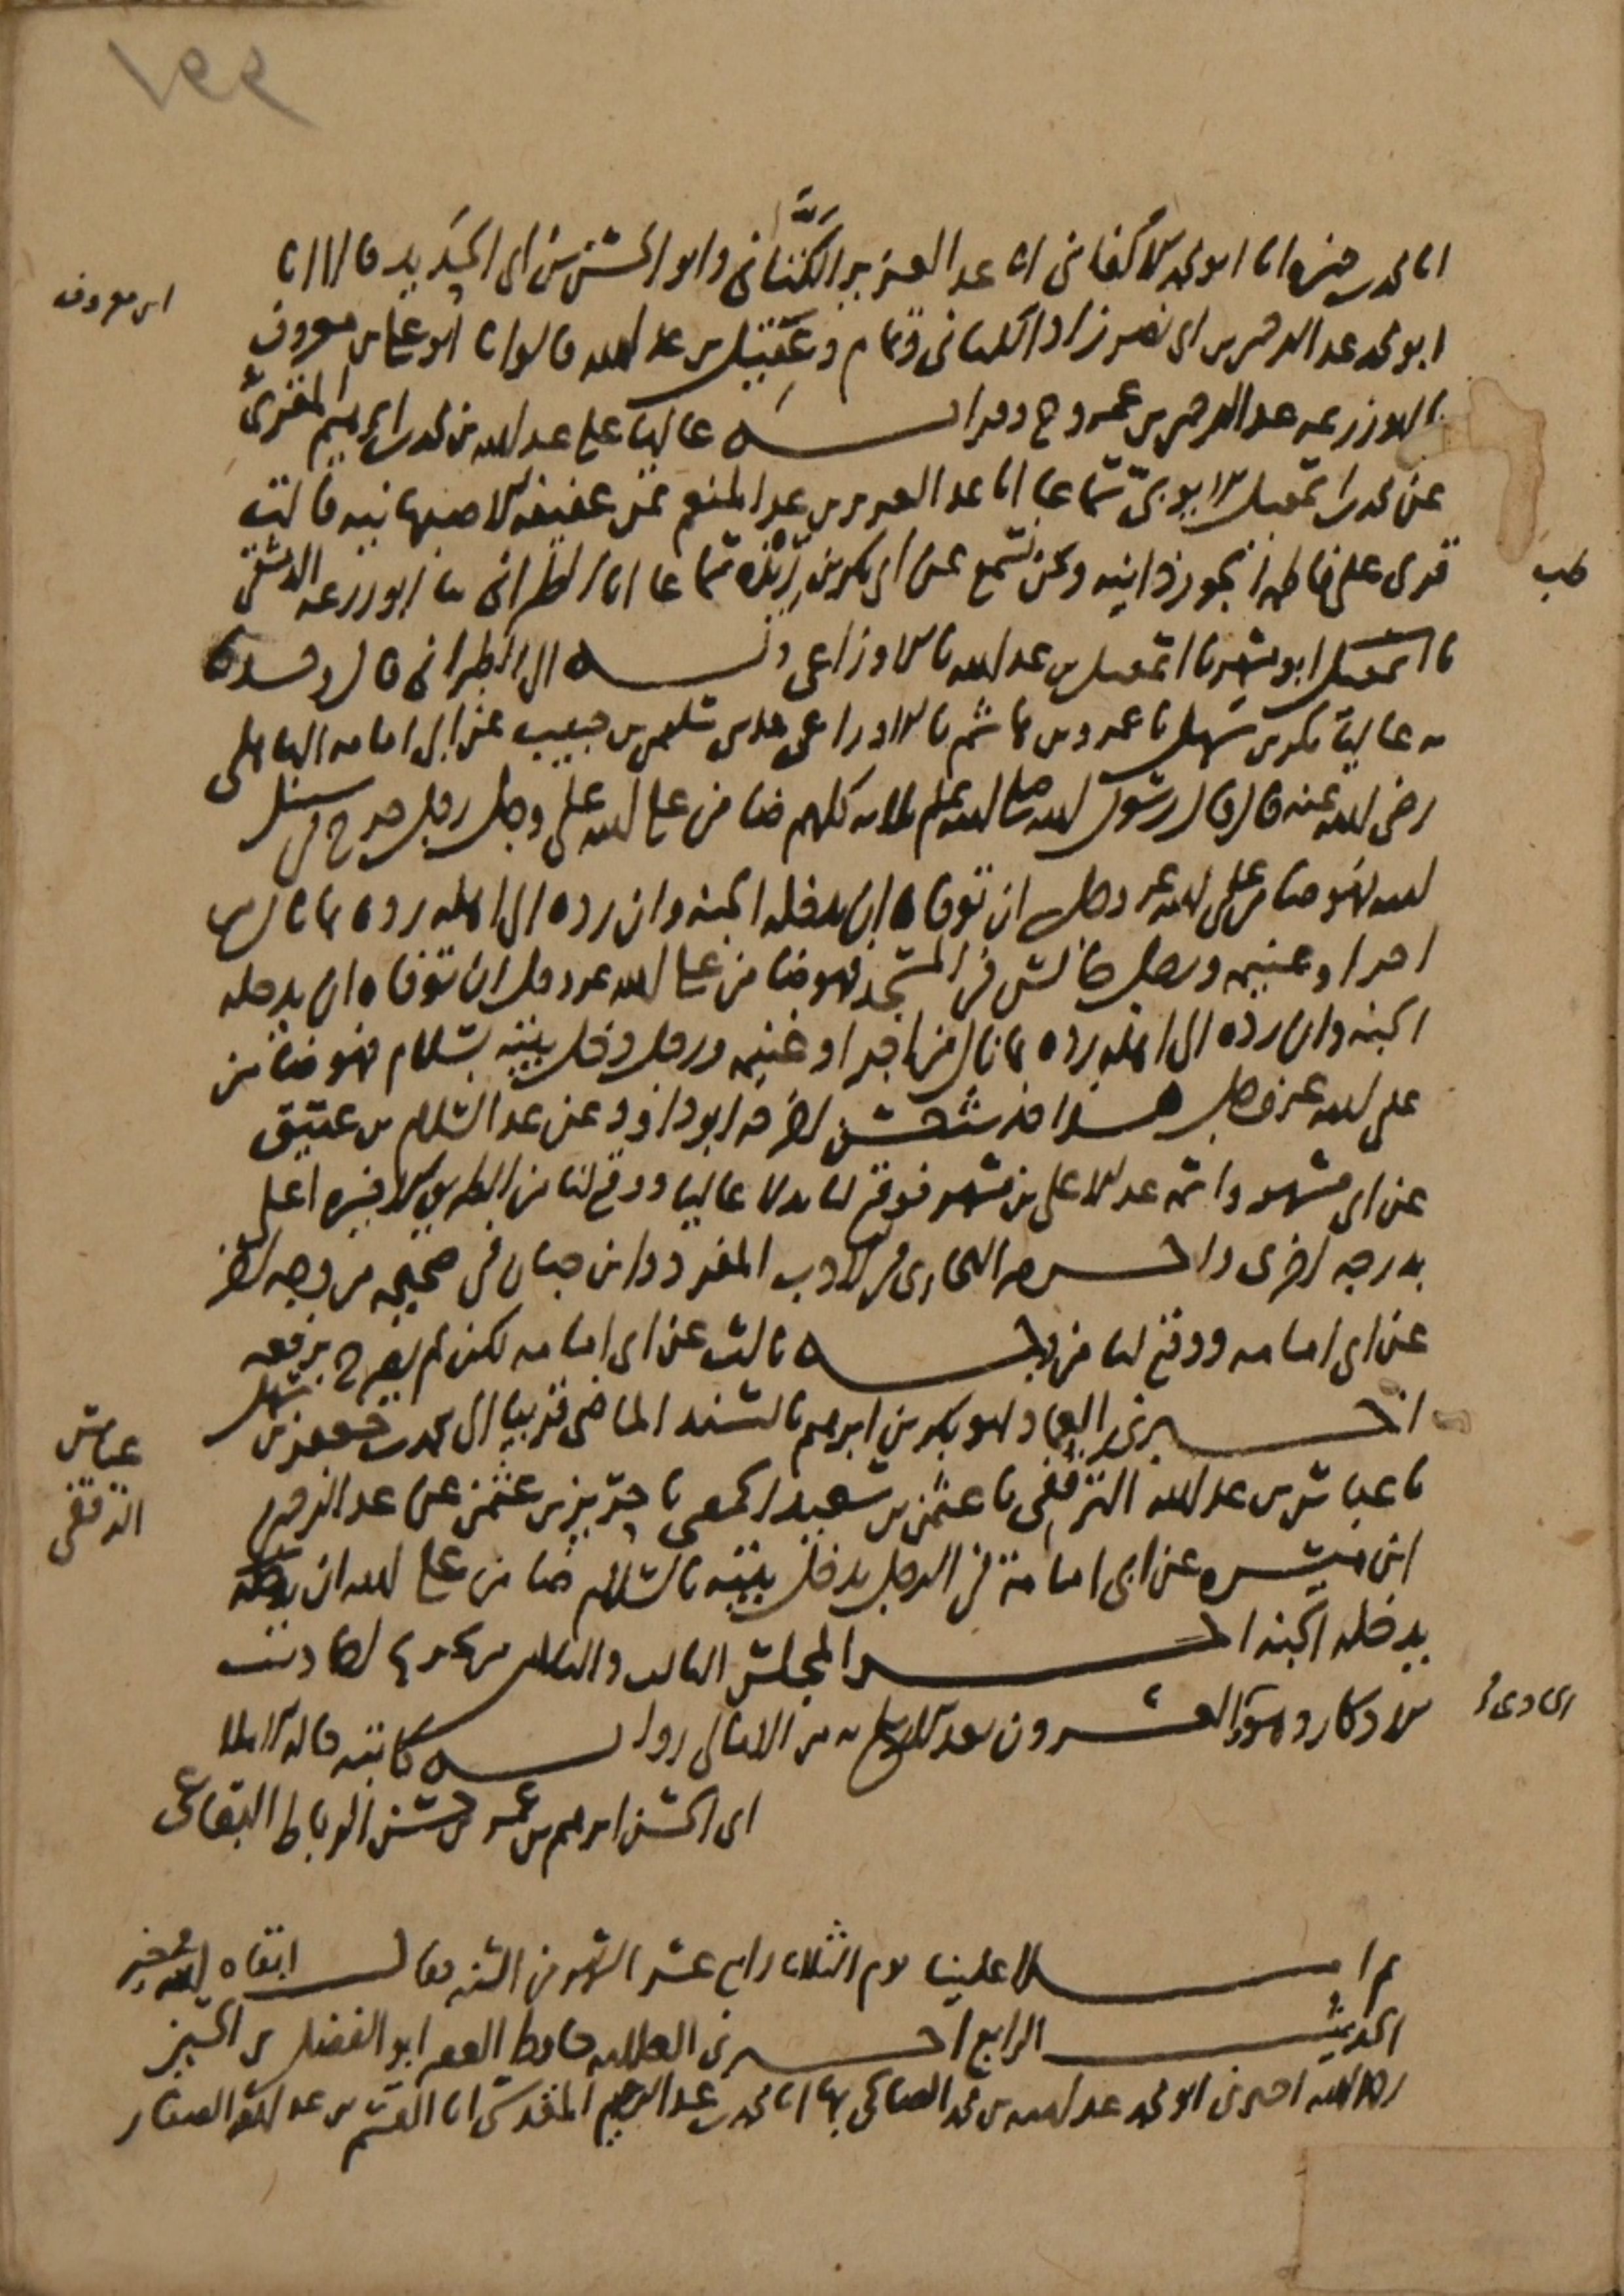 ١٩٩
انا محمد بن حمزه انا ابو محمد الاكفاني انا عبد العزيز الكَتَّاني وابو الحسن بن ابي الحَدِيد قالا انا
ابو محمد عبد الرحمن بن ابي نصر زاد الكتاني وتمام وعَقِيل بن عبد الله قالوا انا ابو علي بن معروف
ابن معروف
نا ابو زرعه عبد الرحمن بن عمرو ح وقراته عاليا على عبد الله بن محمد بن ابرهيم المقرئ
عن محمد بن اسمعيل الايوبي سماعا انا عبد العزيز بن عبد المنعم عن عفيفه الاصبهانيه قالت
قرئ على فاطمه الجوزدانيه ونحن نسمع عن ابي بكر بن رِيْذَه سماعا انا الطبراني نا ابو زرعه الدمشقي
طب
نا ابو مسهر نا اسمعيل بن عبد الله نا الاوزاعي وبه الى الطبراني قال وحدثنا
به عاليا بكر بن سهل نا عمرو بن هاشم نا الاوزاعي حدثني سليمن بن حبيب عن ابي امامه الباهلي
رضي الله عنه قال قال رسول الله صلى الله عليه وسلم ثلاثه كلهم ضامن على الله عز وجل رجل خرج في سبيل
الله فهو ضامن على الله عز وجل ان توفاه ان يدخله الجنه وان رده الى اهله رده بما نال من
اجر او غنيمه ورجل جالس في المسجد فهو ضامن على الله عز وجل ان توفاه ان يدخله
الجنه وان رده الى اهله رده بما نال من اجر او غنيمه ورجل دخل بيته بسلام فهو ضامن
على الله عز وجل هذا حديث حسن اخرجه ابو داوود عن عبد السلام بن عتيق
عن ابي مسهر واسمه عبد الاعلى بن مسهر فوقع لنا بدلا عاليا ووقع لنا من الطريق الاخيره اعلى
بدرجه اخرى واخرجه البخاري في الادب المفرد وابن حبان في صحيحه من وجه اخر
عن ابي امامه ووقع لنا من وجه ثالث عن ابي امامه لكن لم يصرح برفعه
اخبرني العماد ابو بكر بن ابرهيم بالسند الماضي قريبا الى محمد بن جعفر بن سهل
نا عباس بن عبد الله الترقفي نا عثمن بن سعيد الحمصي نا حريز بن عثمن عن عبد الرحمن
عباس
الترقفي
ابن ميسره عن ابي امامة في الرجل يدخل بيته بالسلام ضامن على الله ان
يدخله الجنه اخر المجلس الثالث والثلاثين من تخريج احاديث
الاذكار وهو العشرون بعد الاربع مه من الامالي روايه كاتبه قاله الاملا
ابي الحسن ابرهيم بن عمر بن حسن الرباط البقاعي
ثم املا علينا يوم الثلاثا رابع عشر الشهر من السنه فقال ابقاه الله في خير
الحديث الرابع اخبرني العلامه حافظ العصر ابو الفضل بن الحسين
رحمه الله اخبرني ابو محمد عبد الله بن محمد الصالحي بها انا محمد بن عبد الرحيم المقدسي انا القسم بن عبد الله الصفار